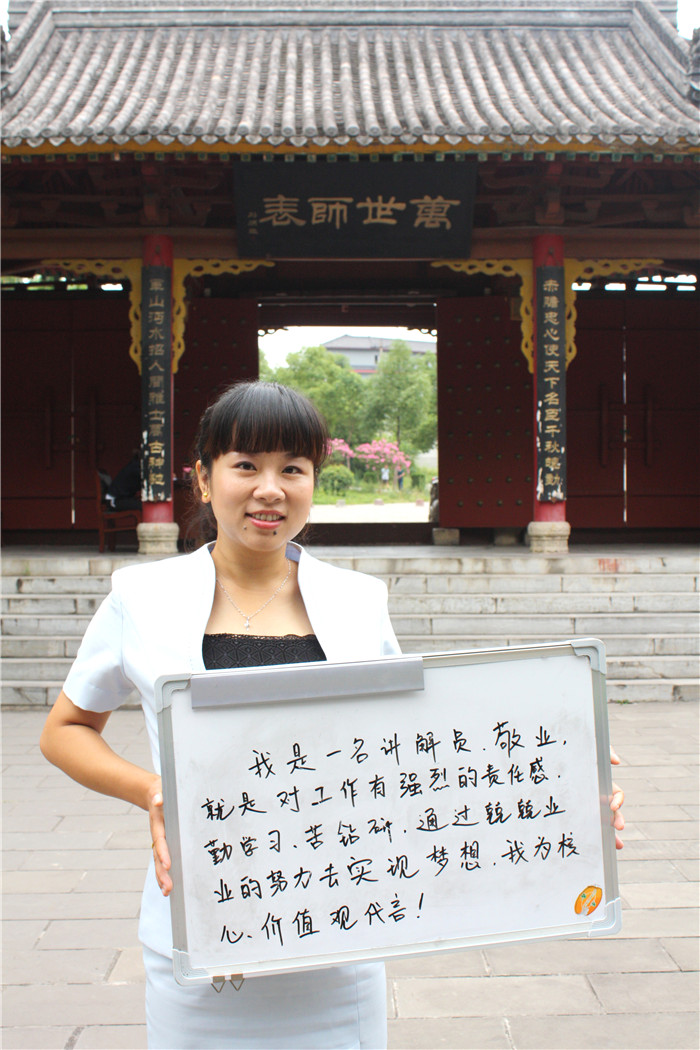 萬世師表
山沔水招人間雅士
赤膽忠心使天下名臣千秋
我是一名讲解员.敬业,
就是对工作有强烈的责任感.
勤学习、苦钻研.通过兢兢业
业的努力去实现梦想.我为核
心价值观代言!